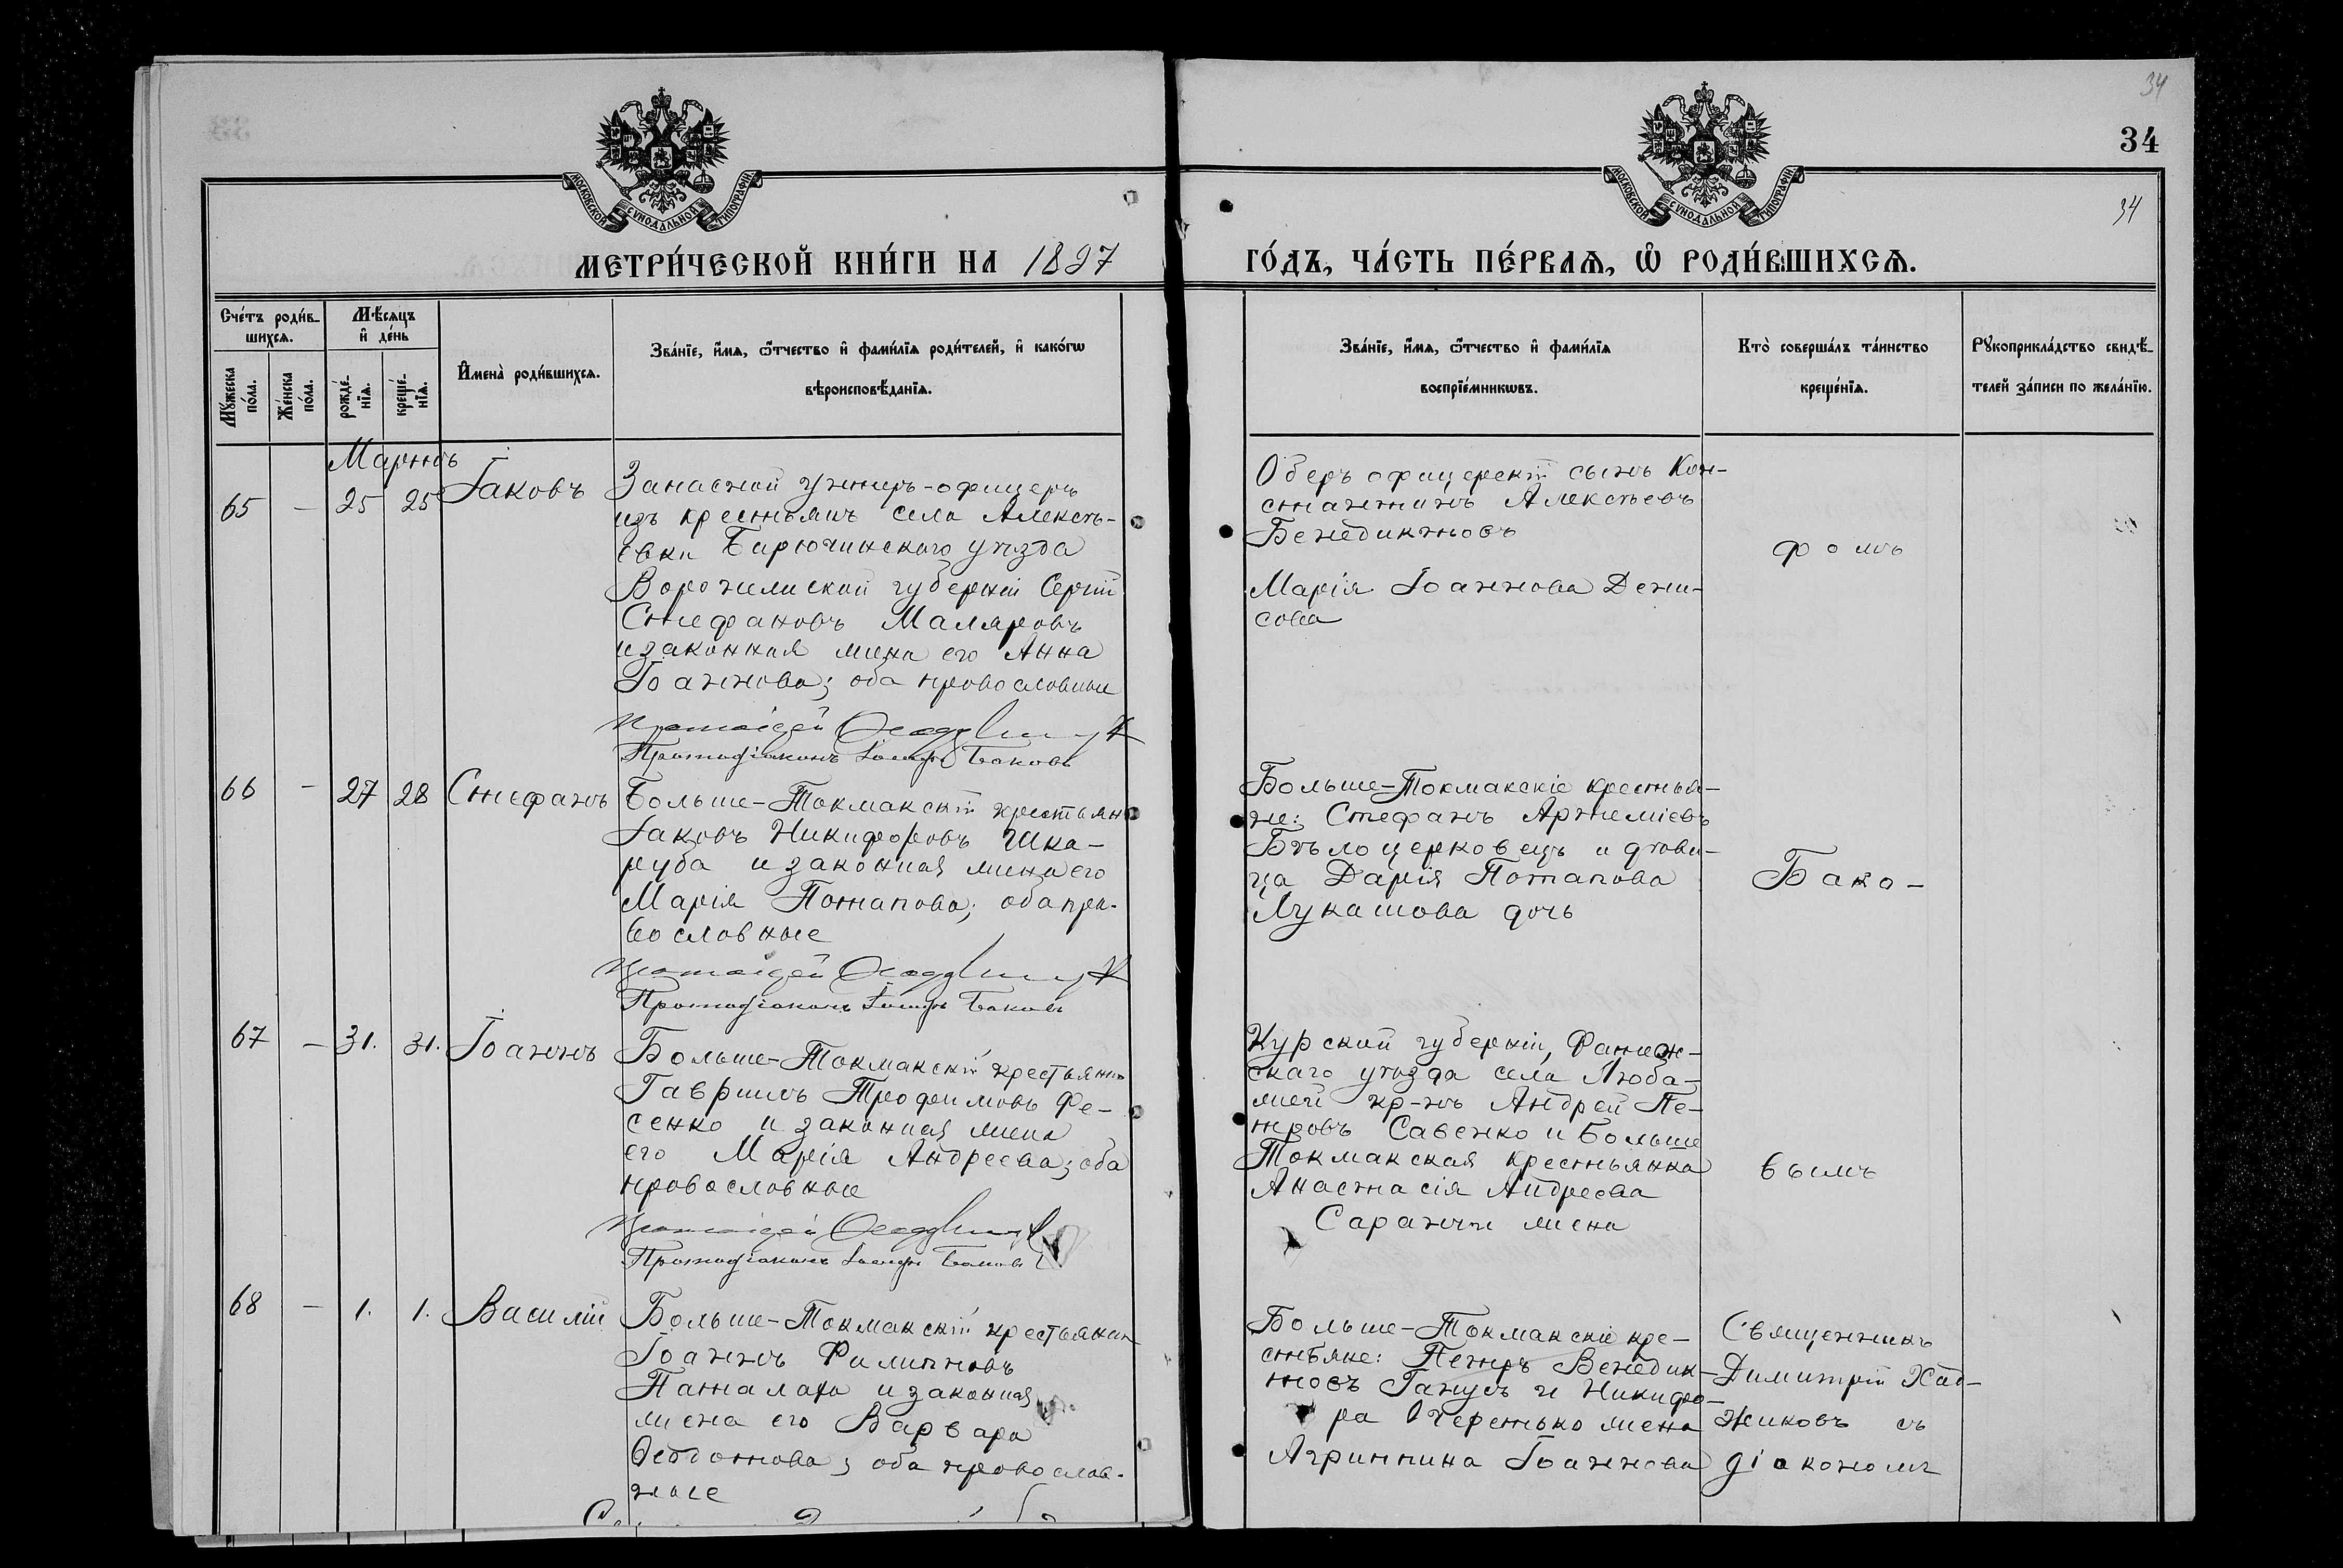 34
34
34
МОСКОВСКОЙ СѴНОДАЛЬНОЙ ТИПОГРАФІИ
МОСКОВСКОЙ СѴНОДАЛЬНОЙ ТИПОГРАФІИ
МЕТРИ́ЧЕСКОЙ КНИ́ГИ НА 1897
ГО́ДЪ, ЧА́СТЬ ПЕ́РВАѦ, Ѽ РОДИ́ВШИХСѦ.
Сче́тъ роди́в-
шихсѧ.
Мꙋ́жеска
по́ла.
Же́нска
по́ла.
Мѣ́сѧцъ
и҆ де́нь
рожде́-
нїѧ.
креще́-
нїѧ.
И҆мена̀ роди́вшихсѧ.
Зва́нїе, и҆́мѧ, ѻ҆́тчество и҆ фами́лїѧ роди́телей, и҆ како́гѡ
вѣроисповѣ́данїѧ.
Зва́нїе, и҆́мѧ, ѻ҆́тчество и҆ фами́лїѧ
воспрїе́мникѡвъ.
Кто̀ соверша́лъ та́инство
креще́нїѧ.
Рꙋкоприкла́дство свидѣ́-
телей за́писи по жела́нїю.
Мартъ
65 — 25 25 Іаковъ
Запасной унтеръ-офицеръ
изъ крестьянъ села Алексѣ-
евки Бирючинскаго уѣзда
Воронежской губерніи Сергій
Стефановъ Маляровъ
и законная жена его Анна
Іоаннова; оба православные
Протоіерей
Протодіаконъ Баковъ
Оберъ офицерскій сынъ Кон-
стантинъ Алексѣевъ
Бенедиктовъ
Марія Іоаннова Дени-
сова
ф о мъ
66 — 27 28 Стефанъ
Больше-Токмакскій крестьянъ
Іаковъ Никифоровъ Шка-
руба и законная жена его
Марія Потапова; оба пра-
вославные
Протоіерей
Протодіаконъ Баковъ
Больше-Токмакскіе крестья-
не: Стефанъ Артеміевъ
Бѣлоцерковецъ и дѣви-
ца Дарія Потапова
Лукашова дочь
Бако-
67 — 31. 31. Іоаннъ
Больше-Токмакскій крестьянъ
Гавріилъ Трофимовъ Фе-
сенко и законная жена
его Марія Андреева; оба
православные
Протоіерей
Протодіаконъ Баковъ
Курской губерніи,
скаго уѣзда села Люба-
кр-нъ Андрей Пе-
тровъ Савенко и Больше
Токмакская крестьянка
Анастасія Андреева
Саранчи жена
вымъ
68 — 1. 1. Василій
Больше-Токмакскій крестьянин
Іоаннъ Филиповъ
Паталаха и законная
жена его Варвара
Ѳедотова; оба православ-
ные
Больше-Токмакскіе кре-
стьяне: Петръ Венедик-
товъ Ганусъ и Никифо-
ра Черетько жена
Агриппина Іоаннова
Священникъ
Димитрій Хад-
жиковъ съ
діакономъ